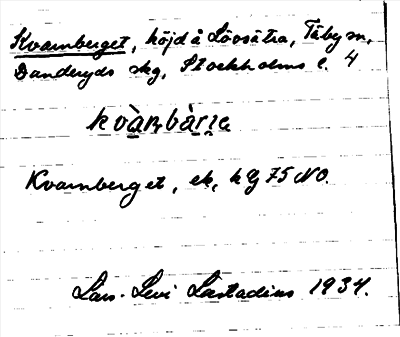 Kvarnberget, höjd å Lövsätra, Täby sn,
Danderyds skg, Stockholms l. 4
kvàrnbàrje
Kvarnberget, ek, h Qj 75 NO.
Lars-Levi Læstadius 1934.